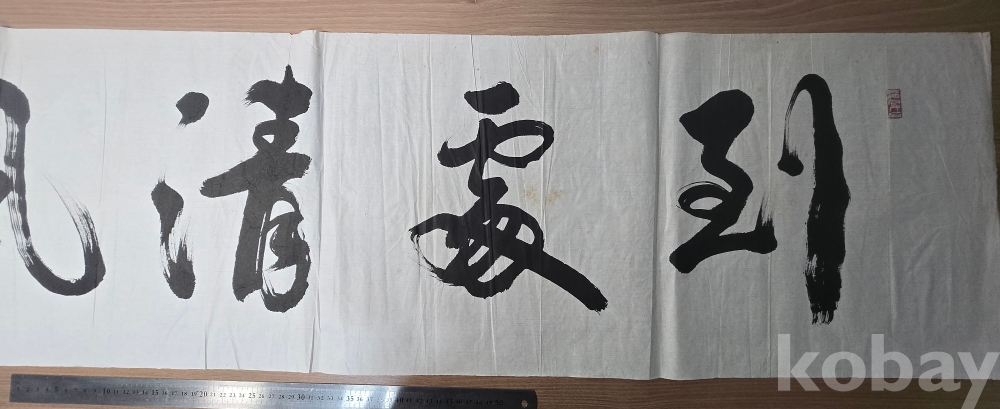 到處清風
kobay